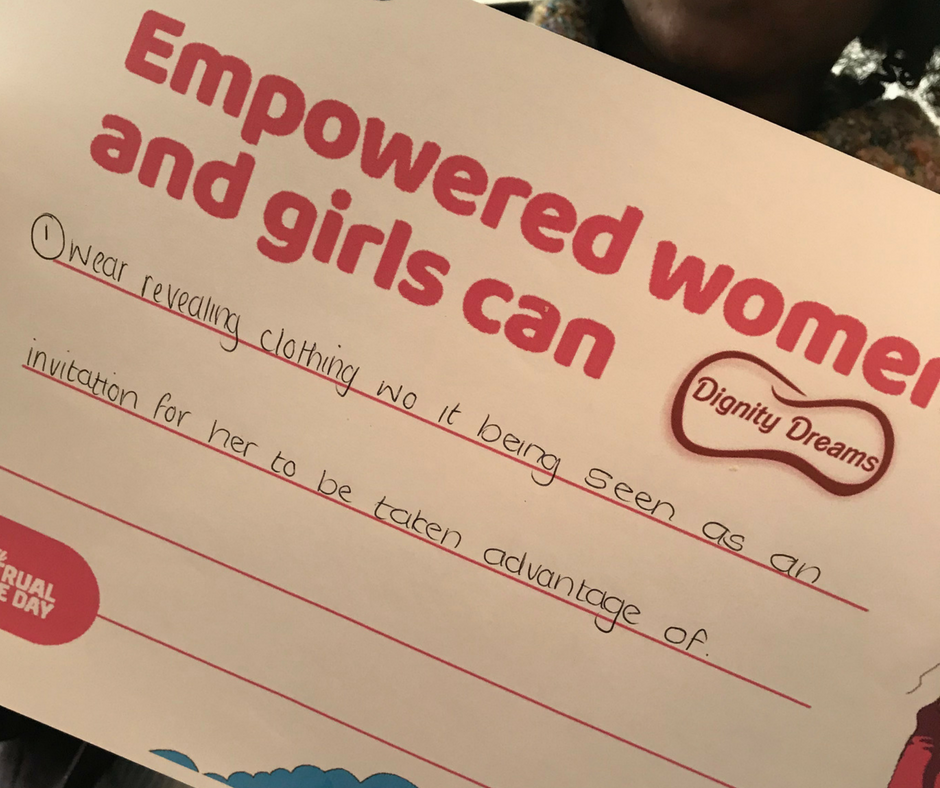 Empowered women
and girls can
① wear revealing clothing wo it being seen as an
Dignity Dreams
invitation for her to be taken advantage of.
TRUAL
E DAY